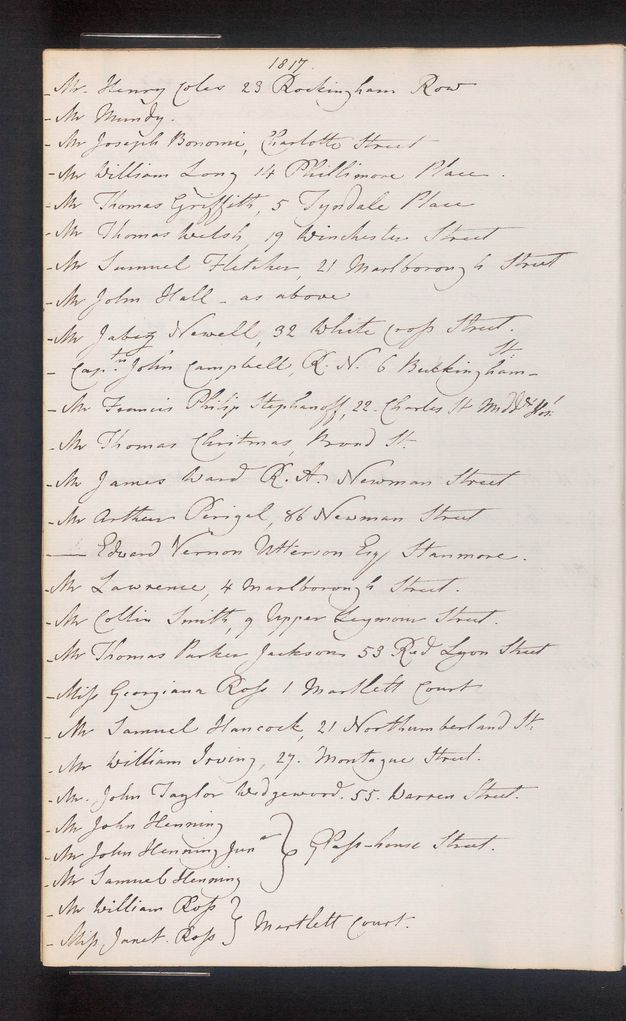 1817.
- Mr. Henry Coles 23 Rockingham Row
- Mr Mundy.
- Mr Joseph Bonomi, Charlotte Street
- Mr William Long 14 Phillimore Place.
- Mr Thomas Griffith, 5 Tyndale Place
- Mr Thomas Welsh, 19 Winchester Street
- Mr Samuel Fletcher, 21 Marlborough Street
- Mr John Hall - as above
- Mr Jabez Newell, 32 White Cross Street.
- Captn. John Campbell, R. N. 6 Buckingham - St.
- Mr Francis Philip Stephanoff, 22. Charles St Middx Hos.
- Mr Thomas Christmas, Broad St.
- Mr James Ward R. A. Newman Street
- Mr Arthur Perigal, 86 Newman Street
- Edward Vernon Utterson Esq Stanmore.
- Mr Lawrence, 4 Marlborough Street.
- Mr Collin Smith, 9 Upper Seymour Street.
- Mr Thomas Parker Jackson 53 Red Lyon Street
- Miss Georgiana Ross 1 Martlett Court
- Mr Samuel Hancock, 21 Northumberland St.
- Mr William Irving, 27. Montague Street.
- Mr. John Taylor Wedgeword. 55. Warren Street.
- Mr John Henning
- Mr John Henning Junr } Glass-house Street.
- Mr Samuel Henning
- Mr William Ross
- Miss Janet Ross } Martlett Court.